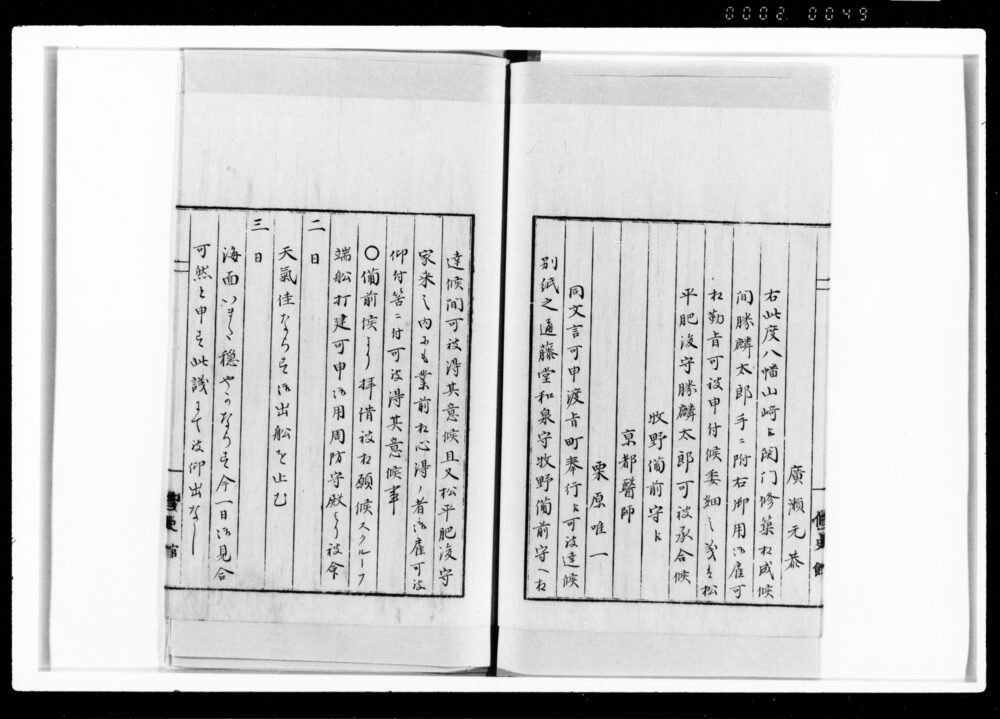 0002 0049
廣瀬元恭
右此度八幡山崎ゟ関門修築相成候
間勝麟太郎手ニ附右御用御雇可
相勤旨可被申付候委細之義者松
平肥後守勝麟太郎可被承合候
牧野備前守ゟ
京都醫師
栗原唯一
同文言可申渡旨町奉行ゟ可被達候
別紙之通藤堂和泉守牧野備前守へ相
修史館
達候間可被得其意候且又松平肥後守
家来之内ニも業前相心得ノ者御雇可被
仰付筈ニ付可被得其意候事
〇備前候ゟ拝借被相願候スクルーフ
端舩打建可申御用周防守殿ゟ被命
二日
天氣佳ならす御出舩を止む
三日
海面いまた穏やかならす今一日御見合
可然と申す此議にて被仰出なし
修史館